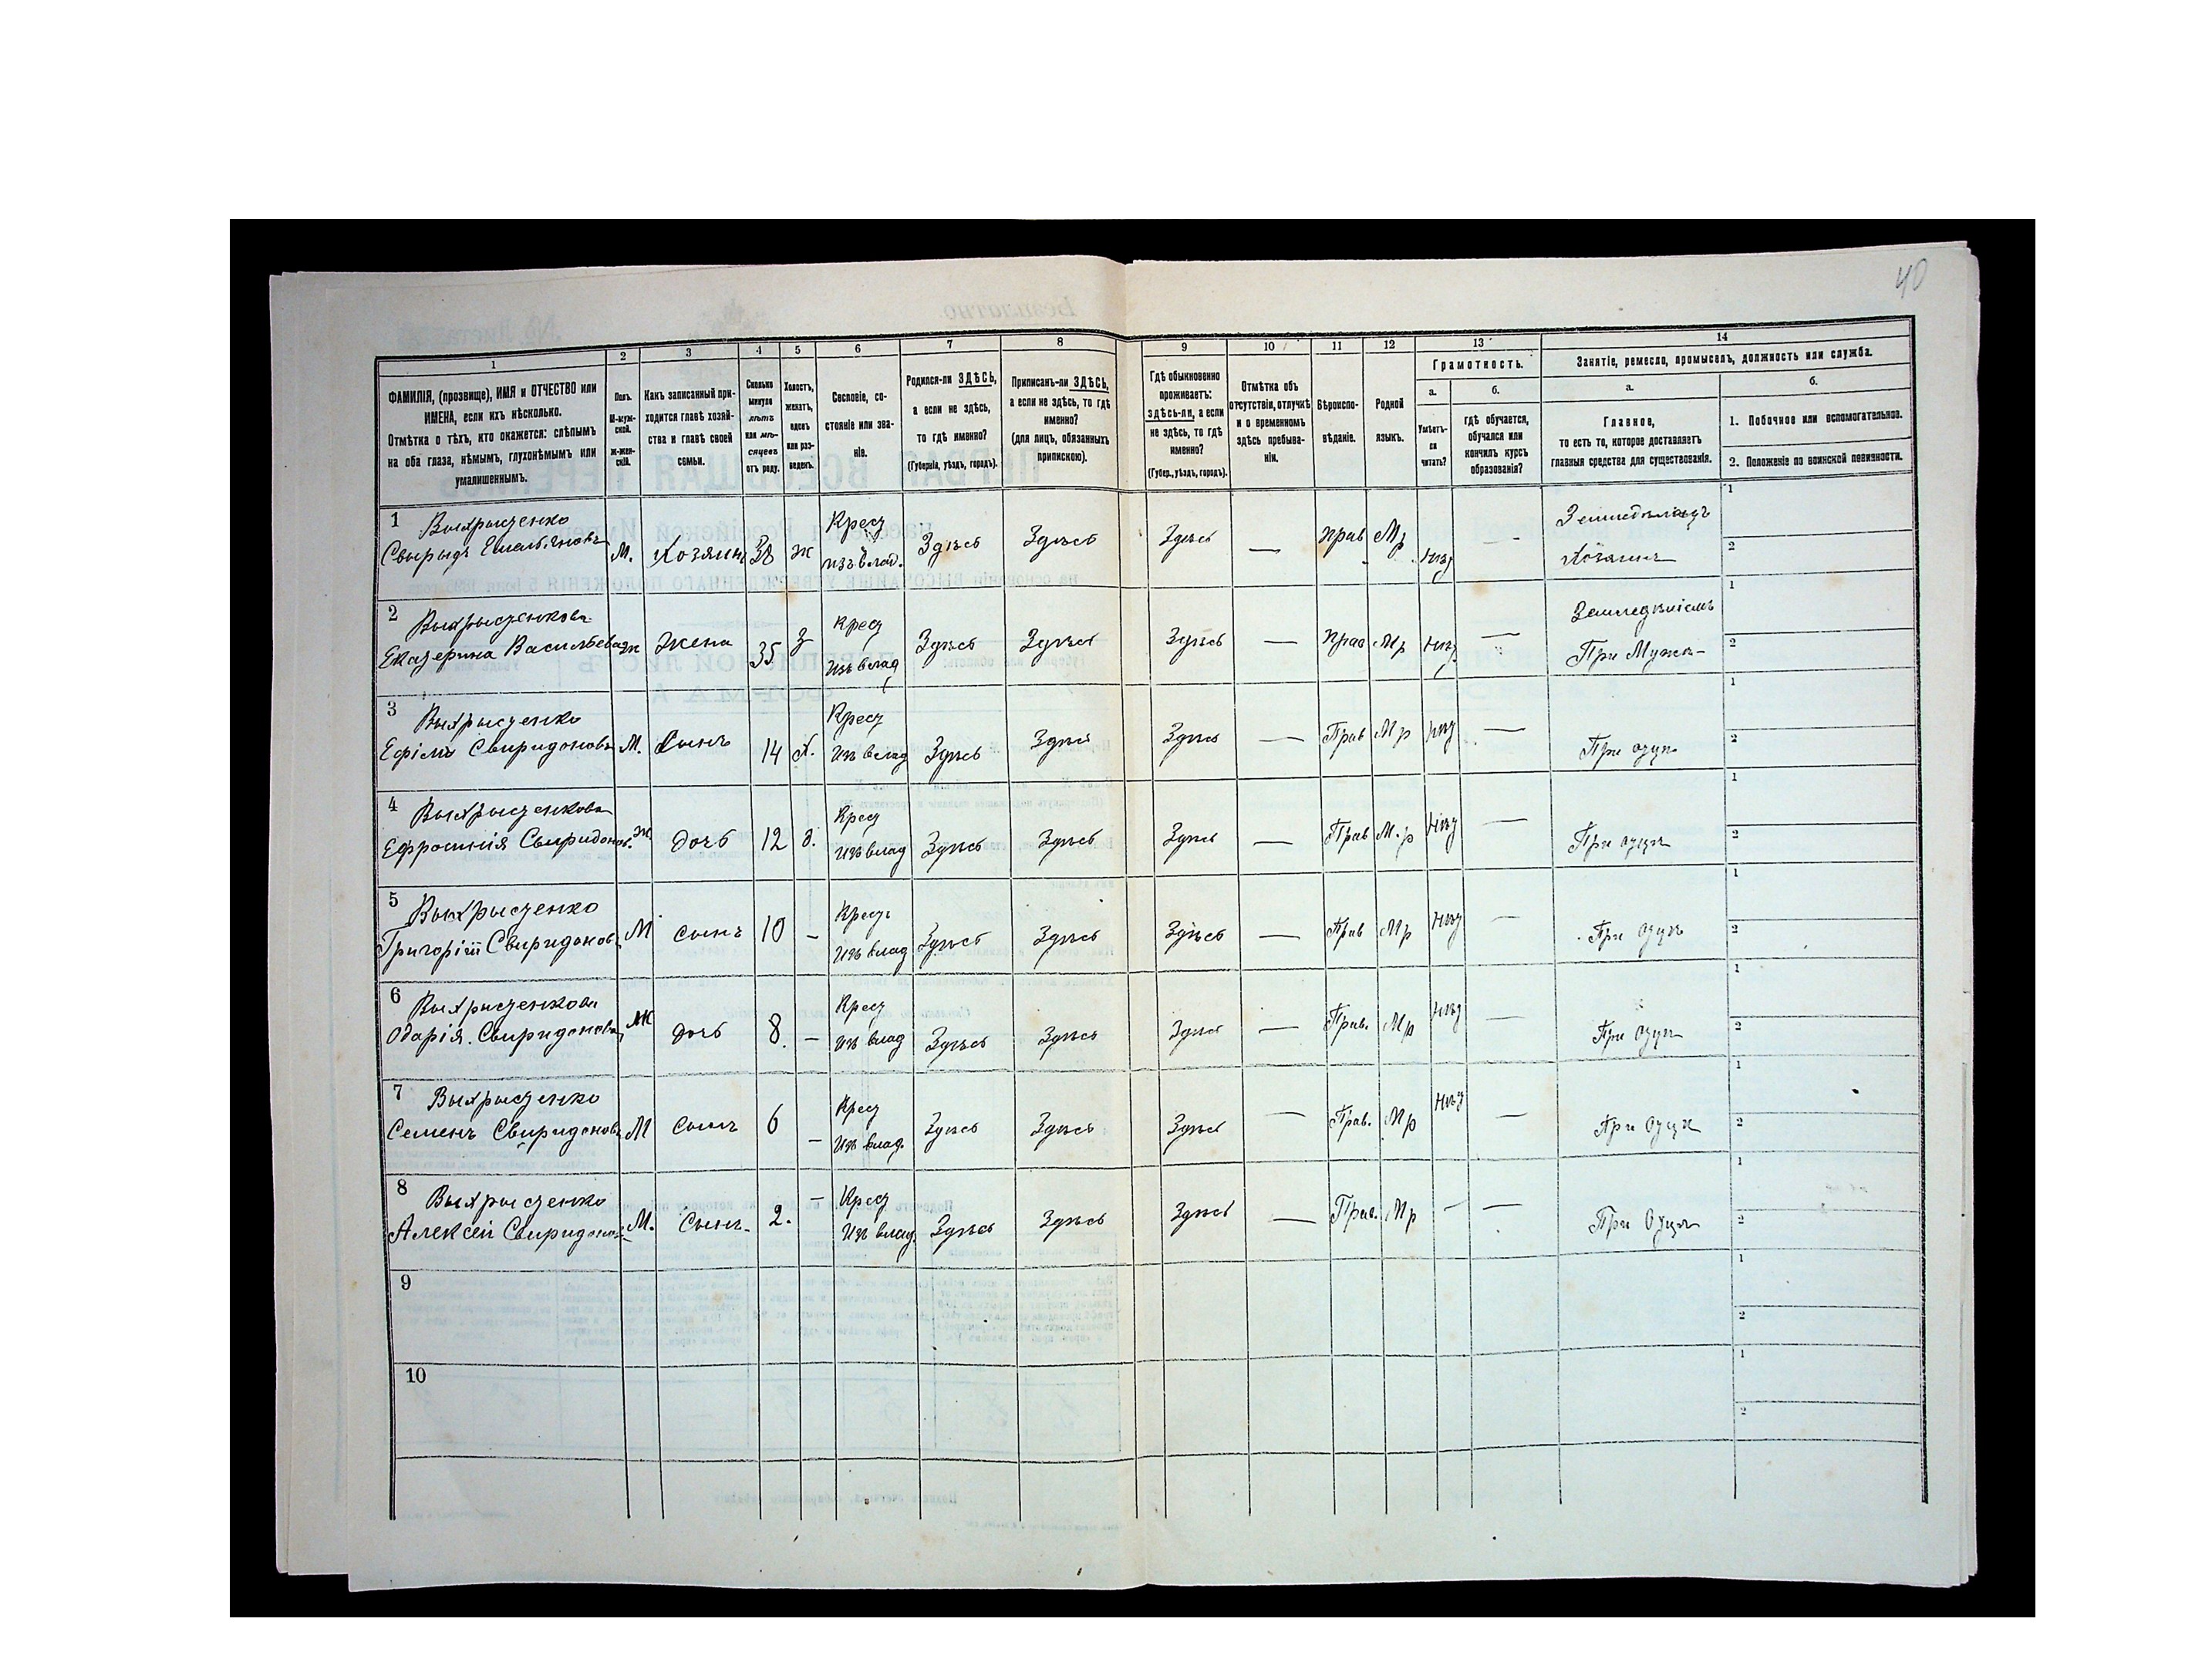 40
1
2
3
4
5
6
7
8
9
10
11
12
13
14
ФАМИЛІЯ, (прозвище), ИМЯ и ОТЧЕСТВО или
ИМЕНА, если ихъ нѣсколько.
Отмѣтка о тѣхъ, кто окажется: слѣпымъ
на оба глаза, нѣмымъ, глухонѣмымъ или
умалишеннымъ.
Полъ.
М-муж-
ской.
ж-жен-
скій.
Какъ записанный при-
ходится главѣ хозяй-
ства и главѣ своей
семьи.
Сколько
минуло
лѣтъ
или мѣ-
сяцевъ
отъ роду.
Холостъ,
женатъ,
вдовъ
или раз-
веденъ.
Сословіе, со-
стояніе или зва-
ніе.
Родился-ли ЗДѢСЬ,
а если не здѣсь,
то гдѣ именно?
(Губернія, уѣздъ, городъ).
Приписанъ-ли ЗДѢСЬ,
а если не здѣсь, то гдѣ
именно?
(для лицъ, обязанныхъ
припискою).
Гдѣ обыкновенно
проживаетъ:
здѣсь-ли, а если
не здѣсь, то гдѣ
именно?
(Губер., уѣздъ, городъ).
Отмѣтка объ
отсутствіи, отлучкѣ
и о временномъ
здѣсь пребыва-
ніи.
Вѣроиспо-
вѣданіе.
Родной
языкъ.
Грамотность.
а.
Умѣетъ-
ли
читать?
б.
гдѣ обучается,
обучался или
кончилъ курсъ
образованія?
Занятіе, ремесло, промыселъ, должность или служба.
а.
Главное,
то есть то, которое доставляетъ
главныя средства для существованія.
б.
1. Побочное или вспомогательное.
2. Положеніе по воинской повинности.
1 Выхрыстенко
Свырыдъ Емельяновъ М. Хозяинъ 38 ж Крест изъ влад. Здѣсь Здѣсь Здѣсь — Прав Мр нѣт — Земледѣлецъ
Хозяинъ
2 Выхрыстенкова
Екатерина Васильева ж Жена 35 з Крест изъ влад Здѣсь Здѣсь Здѣсь — Прав Мр нѣт — Земледѣліемъ
При Мужѣ
3 Выхрыстенко
Ефімъ Свиридоновъ М. Сынъ 14 х. Крест Изъ влад Здѣсь Здѣсь Здѣсь — Прав Мр нѣт — При отцѣ
4 Выхрыстенкова
Ефросинія Свиридонов. ж дочь 12 д. Крест Изъ влад Здѣсь Здѣсь Здѣсь — Прав М.р нѣт — При отцѣ
5 Выхрыстенко
Григорій Свиридонов М сынъ 10 — Крестъ Изъ влад Здѣсь Здѣсь Здѣсь — Прав Мр нѣт — При отцѣ
6 Выхрыстенкова
Одарія Свиридонова ж дочь 8. — Крест Изъ влад Здѣсь Здѣсь Здѣсь — Прав. Мр нѣт — При отцѣ
7 Выхрыстенко
Семенъ Свиридонов М сынъ 6 — Крест Изъ влад. Здѣсь Здѣсь Здѣсь — Прав. Мр нѣт — При Отцѣ
8 Выхрыстенко
Алексѣй Свиридонов М. Сынъ 2. — Крест Изъ влад. Здѣсь Здѣсь Здѣсь — Прав. Мр — — При Отцѣ
9
10